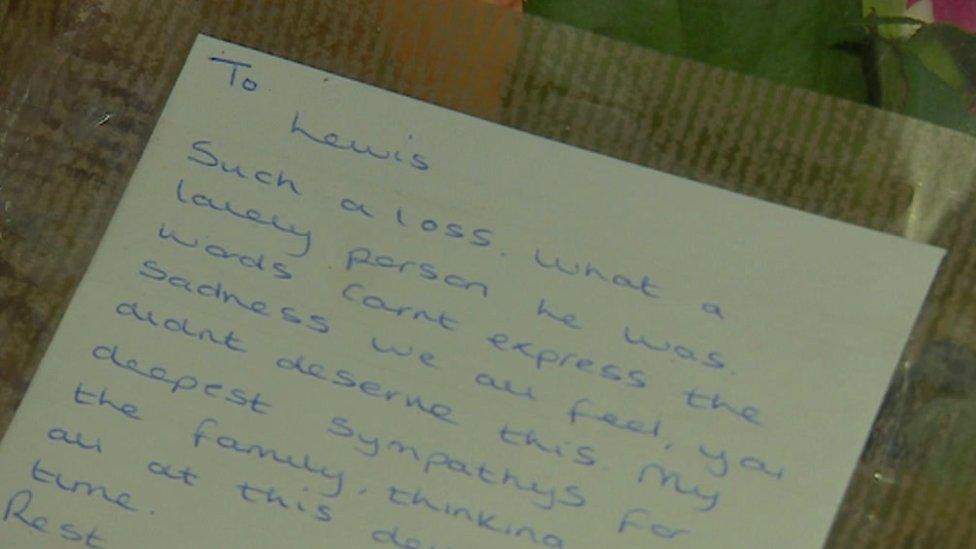 To
Lewis
Such a loss. What a
lovely person he was.
words carnt express the
sadness we all feel, you
didnt deserve this. My
deepest sympathys for
the family. thinking
all at this
time.
Rest